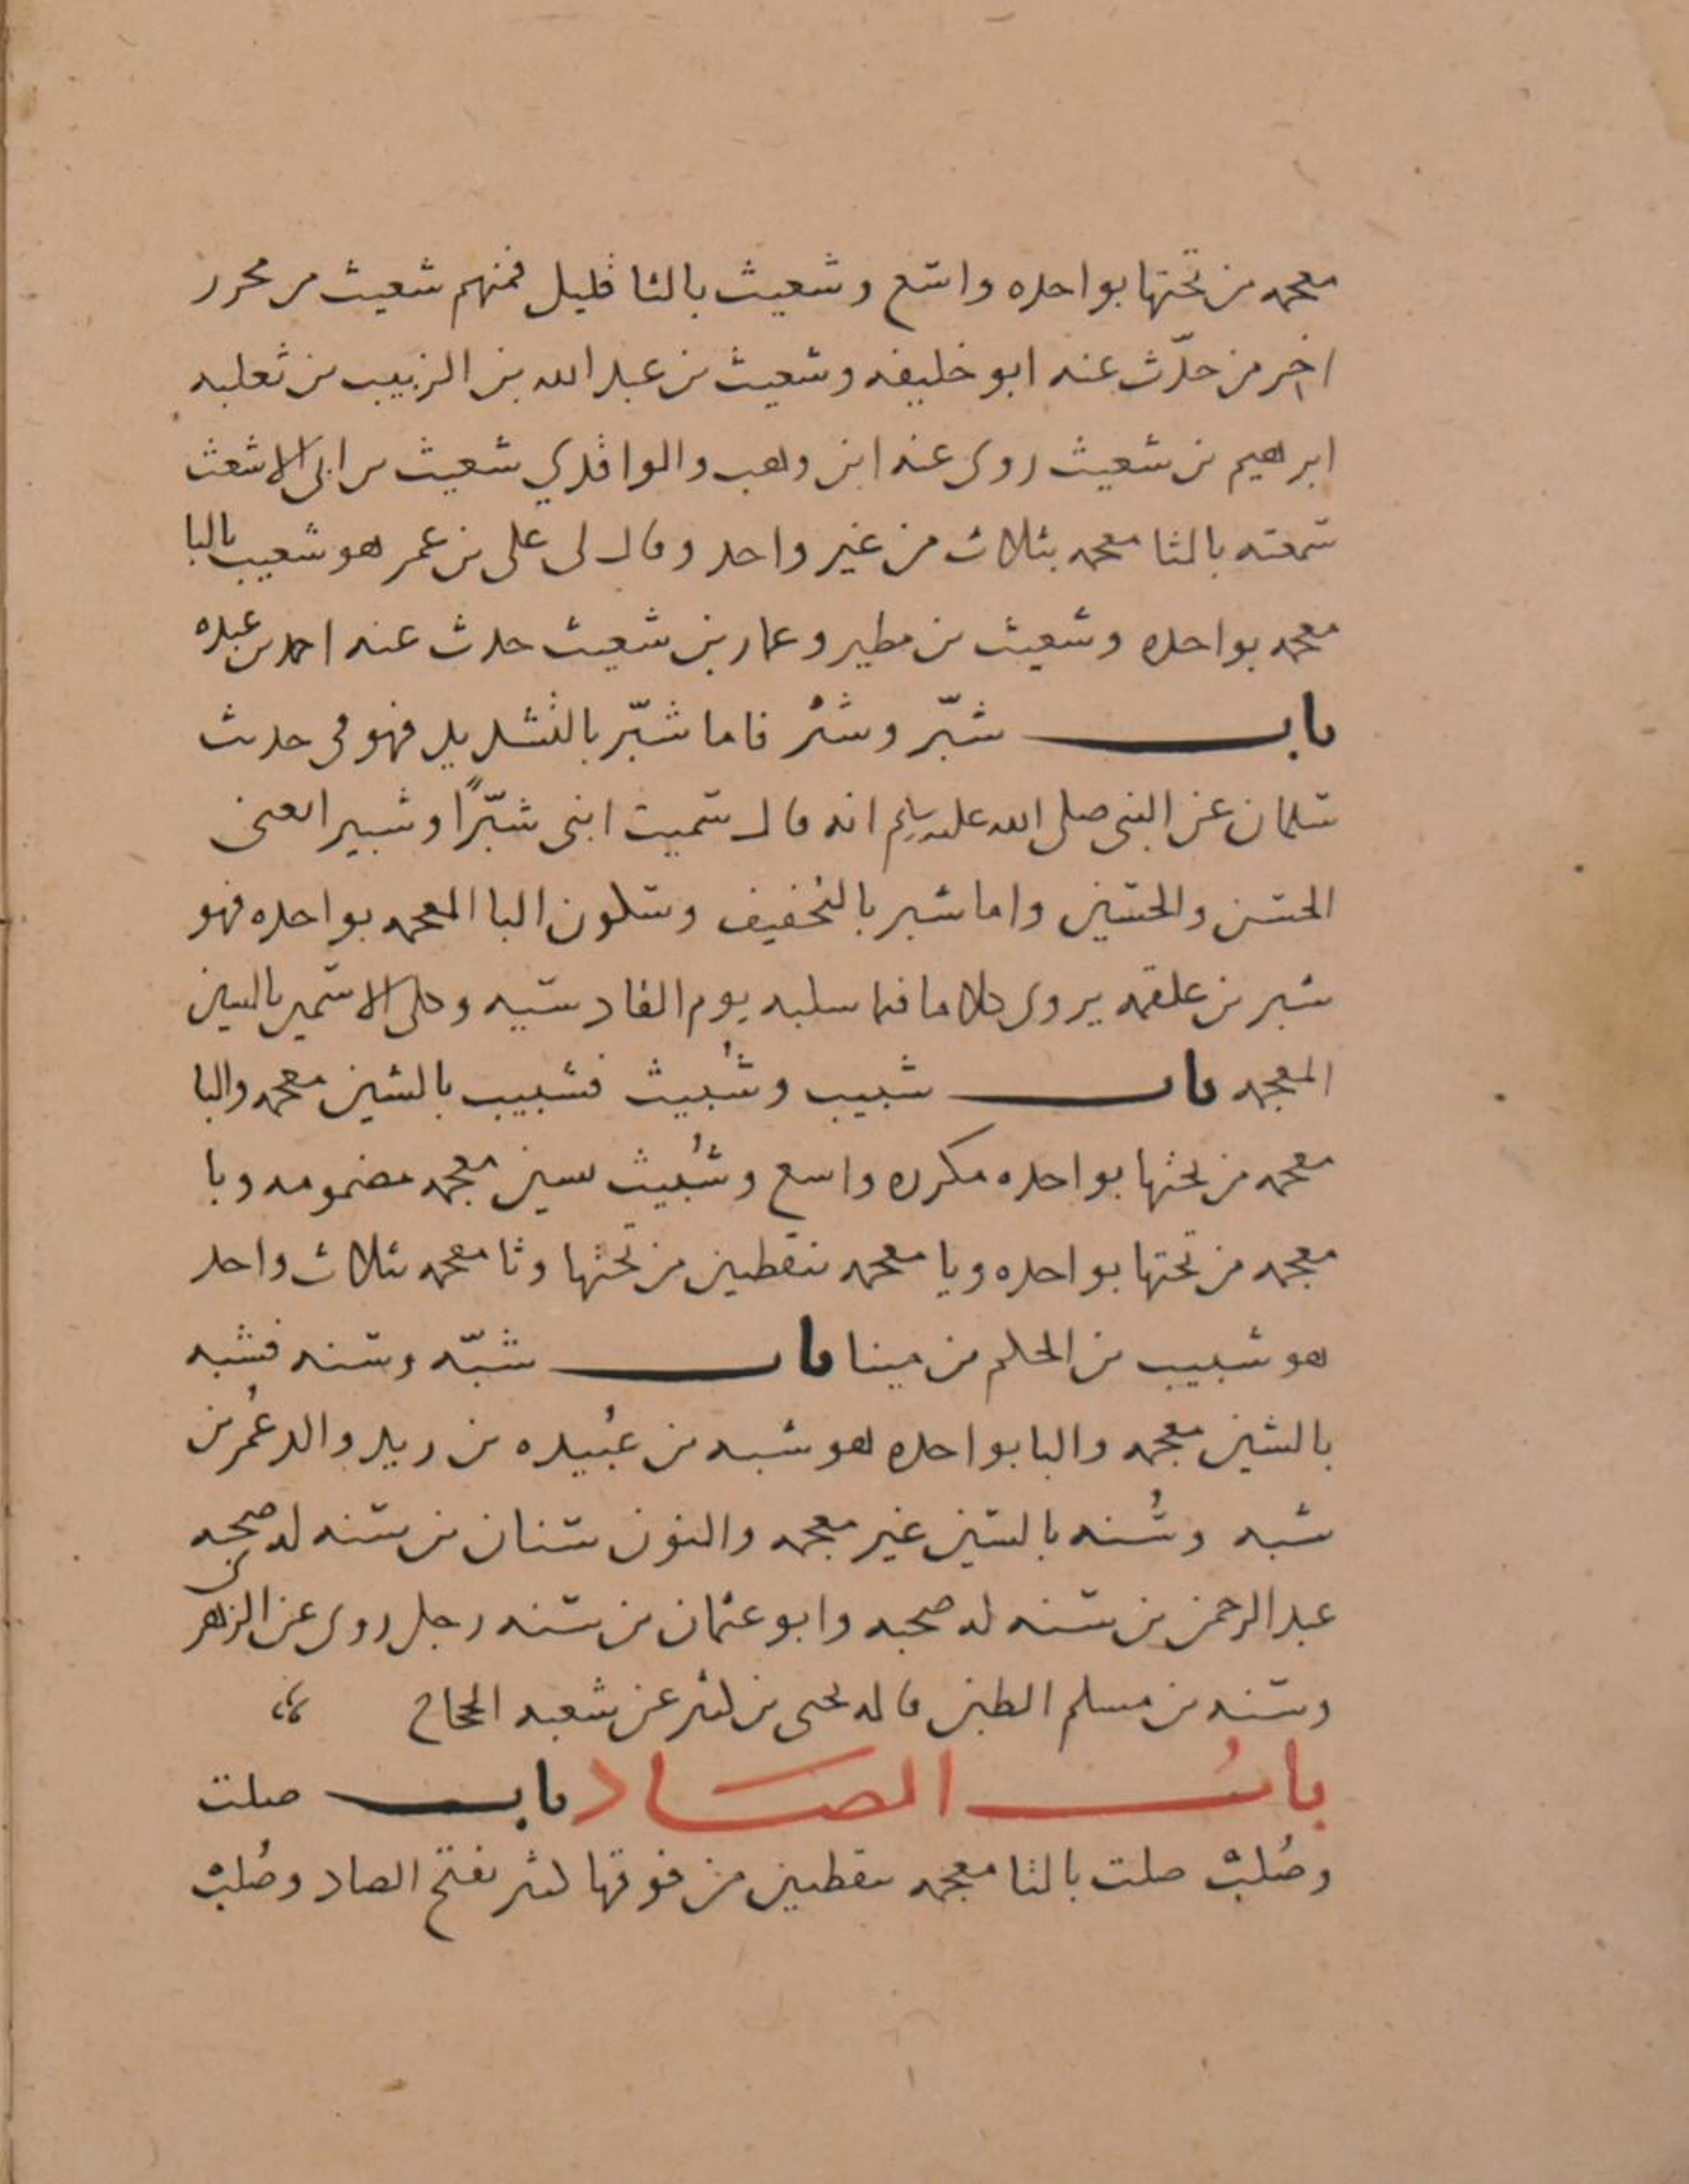 معجمه من تحتها بواحده واسع وشعيث بالثا قليل فمنهم شعيث بن محرر
اخر من حدّث عنه ابو خليفه وشعيث بن عبد الله بن الزبيب بن ثعلبه
ابرهيم بن شعيث روى عنه ابن وهب والواقدي شعيث بن ابى الاشعث
سمعته بالثا معجمه بثلاث من غير واحد وقال لى على بن عمر هو شعيب بالبا
معجمه بواحده وشعيث بن مطير وعمار بن شعيث حدث عنه احمد بن عبده
باب شبّر وشبْر فاما شبّر بالتشديد فهو فى حديث
سلمان عن النبى صلى الله عليه وسلم انه قال سميت ابنى شبّرًا وشبيرا يعنى
الحسن والحسين واما شبر بالتخفيف وسكون البا المعجمه بواحده فهو
شبر بن علقمه يروى كلاما فيما سلبه يوم القادسيه وحكى الاسمين بالسين
المعجمه باب شبيب وشُبيث فشبيب بالشين معجمه والبا
معجمه من تحتها بواحده مكرره واسع وشُبيث بشين معجمه مضمومه وبا
معجمه من تحتها بواحده ويا معجمه بنقطين من تحتها وثا معجمه بثلاث واحد
هو شبيب بن الحكم بن مينا باب شبّه وسنه فشبه
بالشين معجمه والبا بواحده هو شبه بن عُبيده بن زيد والد عُمر بن
شبه وسُنه بالسين غير معجمه والنون سنان بن سنه له صحبه
عبد الرحمن بن سنه له صحبه وابو عثمان بن سنه رجل روى عن الزهرى
وسنه بن مسلم الطين قاله يحيى بن كثير عن شعبه الحجاج
بابُ الصَاد باب صلت
وصُلبْ صلت بالتا معجمه بنقطين من فوقها كثير بفتح الصاد وصُلبْ